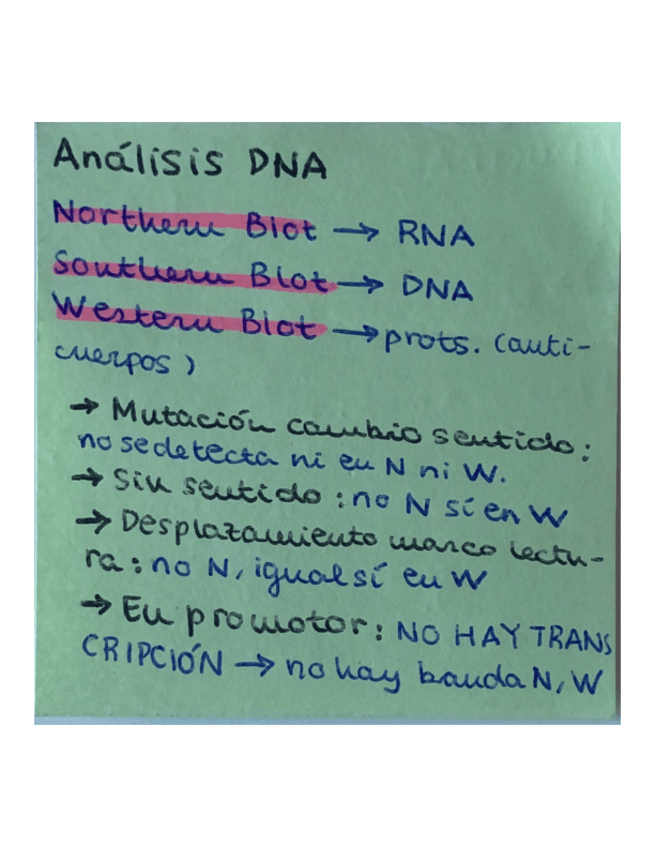 Análisis DNA
Northern Blot → RNA
Southern Blot → DNA
Western Blot → prots. (anti-
cuerpos)
→ Mutación cambio sentido:
no se detecta ni en N ni W.
→ Sin sentido: no N sí en W
→ Desplazamiento marco lectu-
ra: no N, igual sí en W
→ En promotor: NO HAY TRANS
CRIPCIÓN → no hay banda N, W